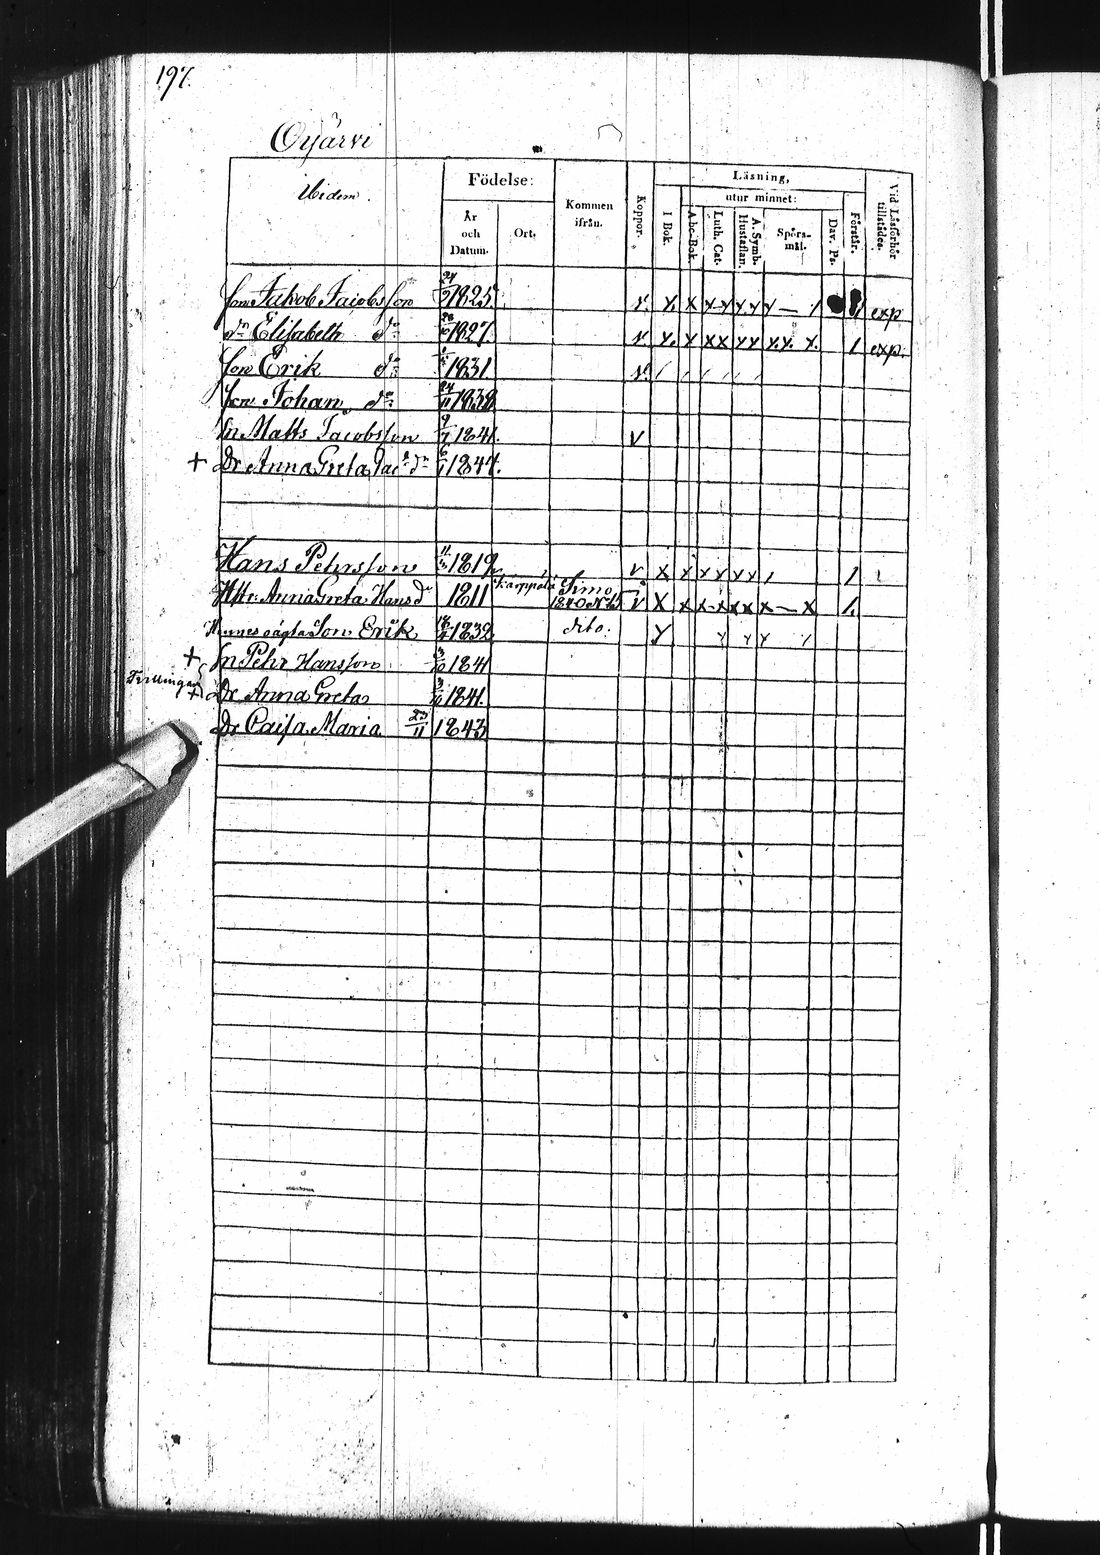 197.
Oyärvi
Ibidem.
Födelse:
År och Datum.
Ort.
Kommen ifrån.
Koppor.
Läsning,
utur minnet:
I Bok.
Abc-Bok.
Luth. Cat.
A. Symb. Hustaflan.
Spörs-mål.
Dav. Ps.
Förstår.
Vid Läsförhör tillstädes.
son Jakob Jacobsson 1825 v. x. x x x x x x — / exp
dr Elisabeth do 1827. v. x. x x x x x x. x. x. 1 exp.
son Erik do 1831 v.
son Johan do 24/11 1838
Sn Matts Jacobsson 9/7 1841. v
+ Dr Anna Greta Jac: dr 6/1 1847.
Hans Petersson 11/3 1819 v x x x x x x / 1
Hstr: Anna Greta Hans dr 1811 Karppala Simo 1840 N:15 v x x x x x x x — x 1.
Hennes oägta Son Erik 18/4 1832 dito. x
+ Sn Pehr Hansson 3/10 1841
Tvillingar
+ Dr Anna Greta 3/10 1841.
Dr Caisa Maria 23/11 1843